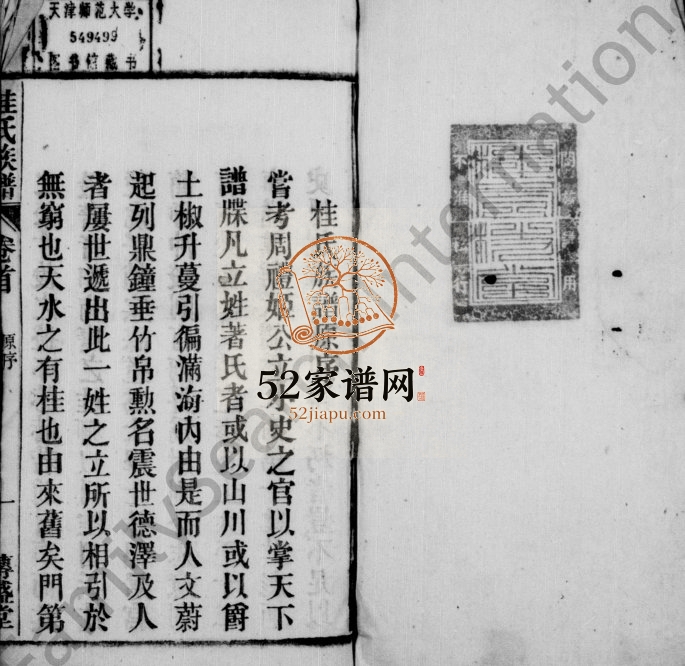 天津师范大学
549499
图书馆藏书
桂氏族譜原序
嘗考周禮姬公立小史之官以掌天下
譜牒凡立姓著氏者或以山川或以爵
土椒升蔓引徧滿海內由是而人文蔚
起列鼎鐘垂竹帛勲名震世德澤及人
者屢世遞出此一姓之立所以相引於
無窮也天水之有桂也由來舊矣門第
桂氏族譜
卷首
原序
一
52家谱网
52jiapu.com
FamilySearch International